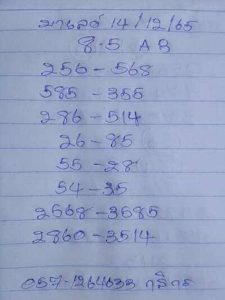 มาเลย์ 14/12/65
8-5 A B
256-568
585-355
286-514
26-85
55-28
54-35
2668-3685
2860-3514
057-1264633